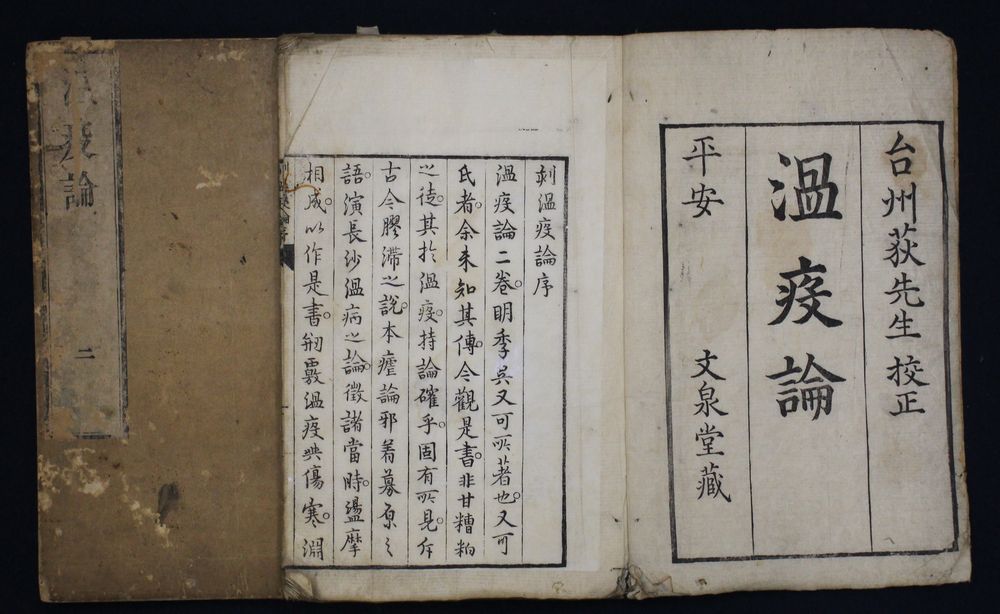 台州荻先生校正
溫疫論
平安　文泉堂藏
刻溫疫論序
溫疫論二卷。明季吳又可所著也。又可
氏者。余未知其傳。今觀是書。非甘糟粕
之徒。其於溫疫。持論確乎。固有所見。斥
古今膠滯之說。本瘧論邪着募原之
語。演長沙溫病之論。徵諸當時。盪摩
相成。以作是書。剏覈溫疫與傷寒。淵
疫論
二